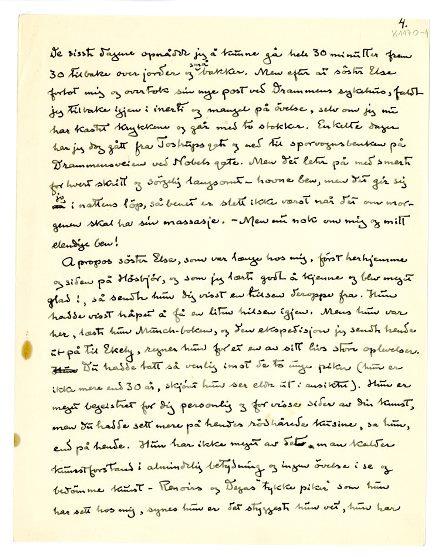 4.
K1170-1
De sisste dagene opnådde jeg å kunne gå hele 30 minutter frem
30 tilbake over jorder og små bakker. Men efter at søster Else
forlot mig og overtok sin nye post ved Drammens sykehus, faldt
jeg tilbake igjen i inerti og mangel på øvelse, selv om jeg nu
har kastet krykkene og går med to stokker. Enkelte dager
har jeg dog gått fra Tostrups gate og ned til sporvognsbenken på
Drammensveien ved Nobels gate. Men det letr på med smerte
for hvert skritt og sørgelig langsomt – hovne ben, men det gir sig
jo i nattens løp, så benet er slett ikke værst når det om mor-
genen skal ha sin massasje. – Men nu nok om mig og mitt
elendige ben!
A propos søster Else, som var længe hos mig, først herhjemme
og siden på Høsbjør, og som jeg lærte godt å kjenne og blev meget
glad i, så sendte hun dig visst en hilsen deroppe fra. Hun
hadde visst håpet å få en liten hilsen igjen. Mens hun var
her, læste hun Munch-boken, og den ekspedisjon jeg sendte hende
ut på til Ekely, regner hun for et en av sitt livs store oplevelser.
Du hadde tatt så venlig imot de to unge piker (hun er
ikke mere end 30 år, skjønt hun ser eldre ut i ansiktet). Hun er
meget begeistret for dig personlig og for visse sider av din kunst,
men du hadde sett mere på hendes rødhårede kusine, sa hun,
end på hende. Hun har ikke meget av det, man kalder
kunstforstand i almindelig betydning og ingen øvelse i se og
bedømme kunst – Renoirs og Degas' "tykke piker" som hun
har sett hos mig, synes hun er det styggeste hun vet, hun har